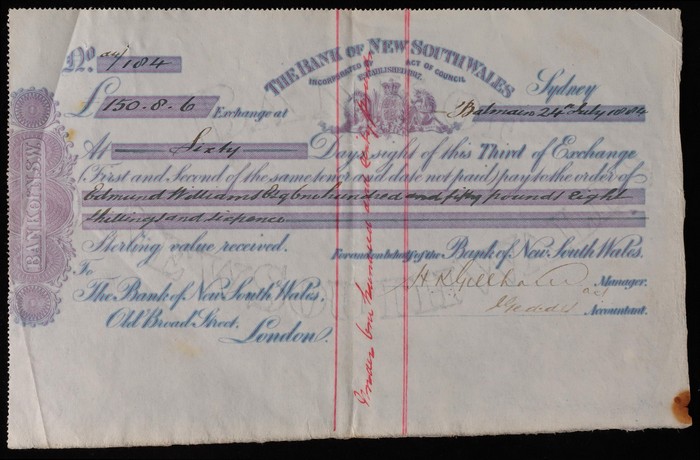 No. a/y/184
THE BANK OF NEW SOUTH WALES
INCORPORATED BY ACT OF COUNCIL
ESTABLISHED 1817.
Sydney
£150-8-6 Exchange at Balmain 24th July 1884
At Sixty Days sight of this Third of Exchange
(First and Second of the same tenor and date not paid) pay to the order of
Edmund Williams Esq one hundred and fifty pounds eight
shillings and sixpence
Sterling value received. For and on behalf of the Bank of New South Wales.
To
Manager.
The Bank of New South Wales,
Accountant.
Old Broad Street,
London.
BANK OF N.S.W.
Under one hundred and